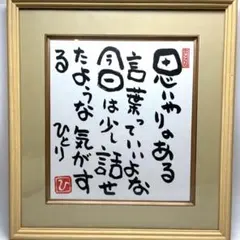 思いやりのある
言葉っていいよな
今日は少し話せ
たような気がす
る
ひとり
ひ